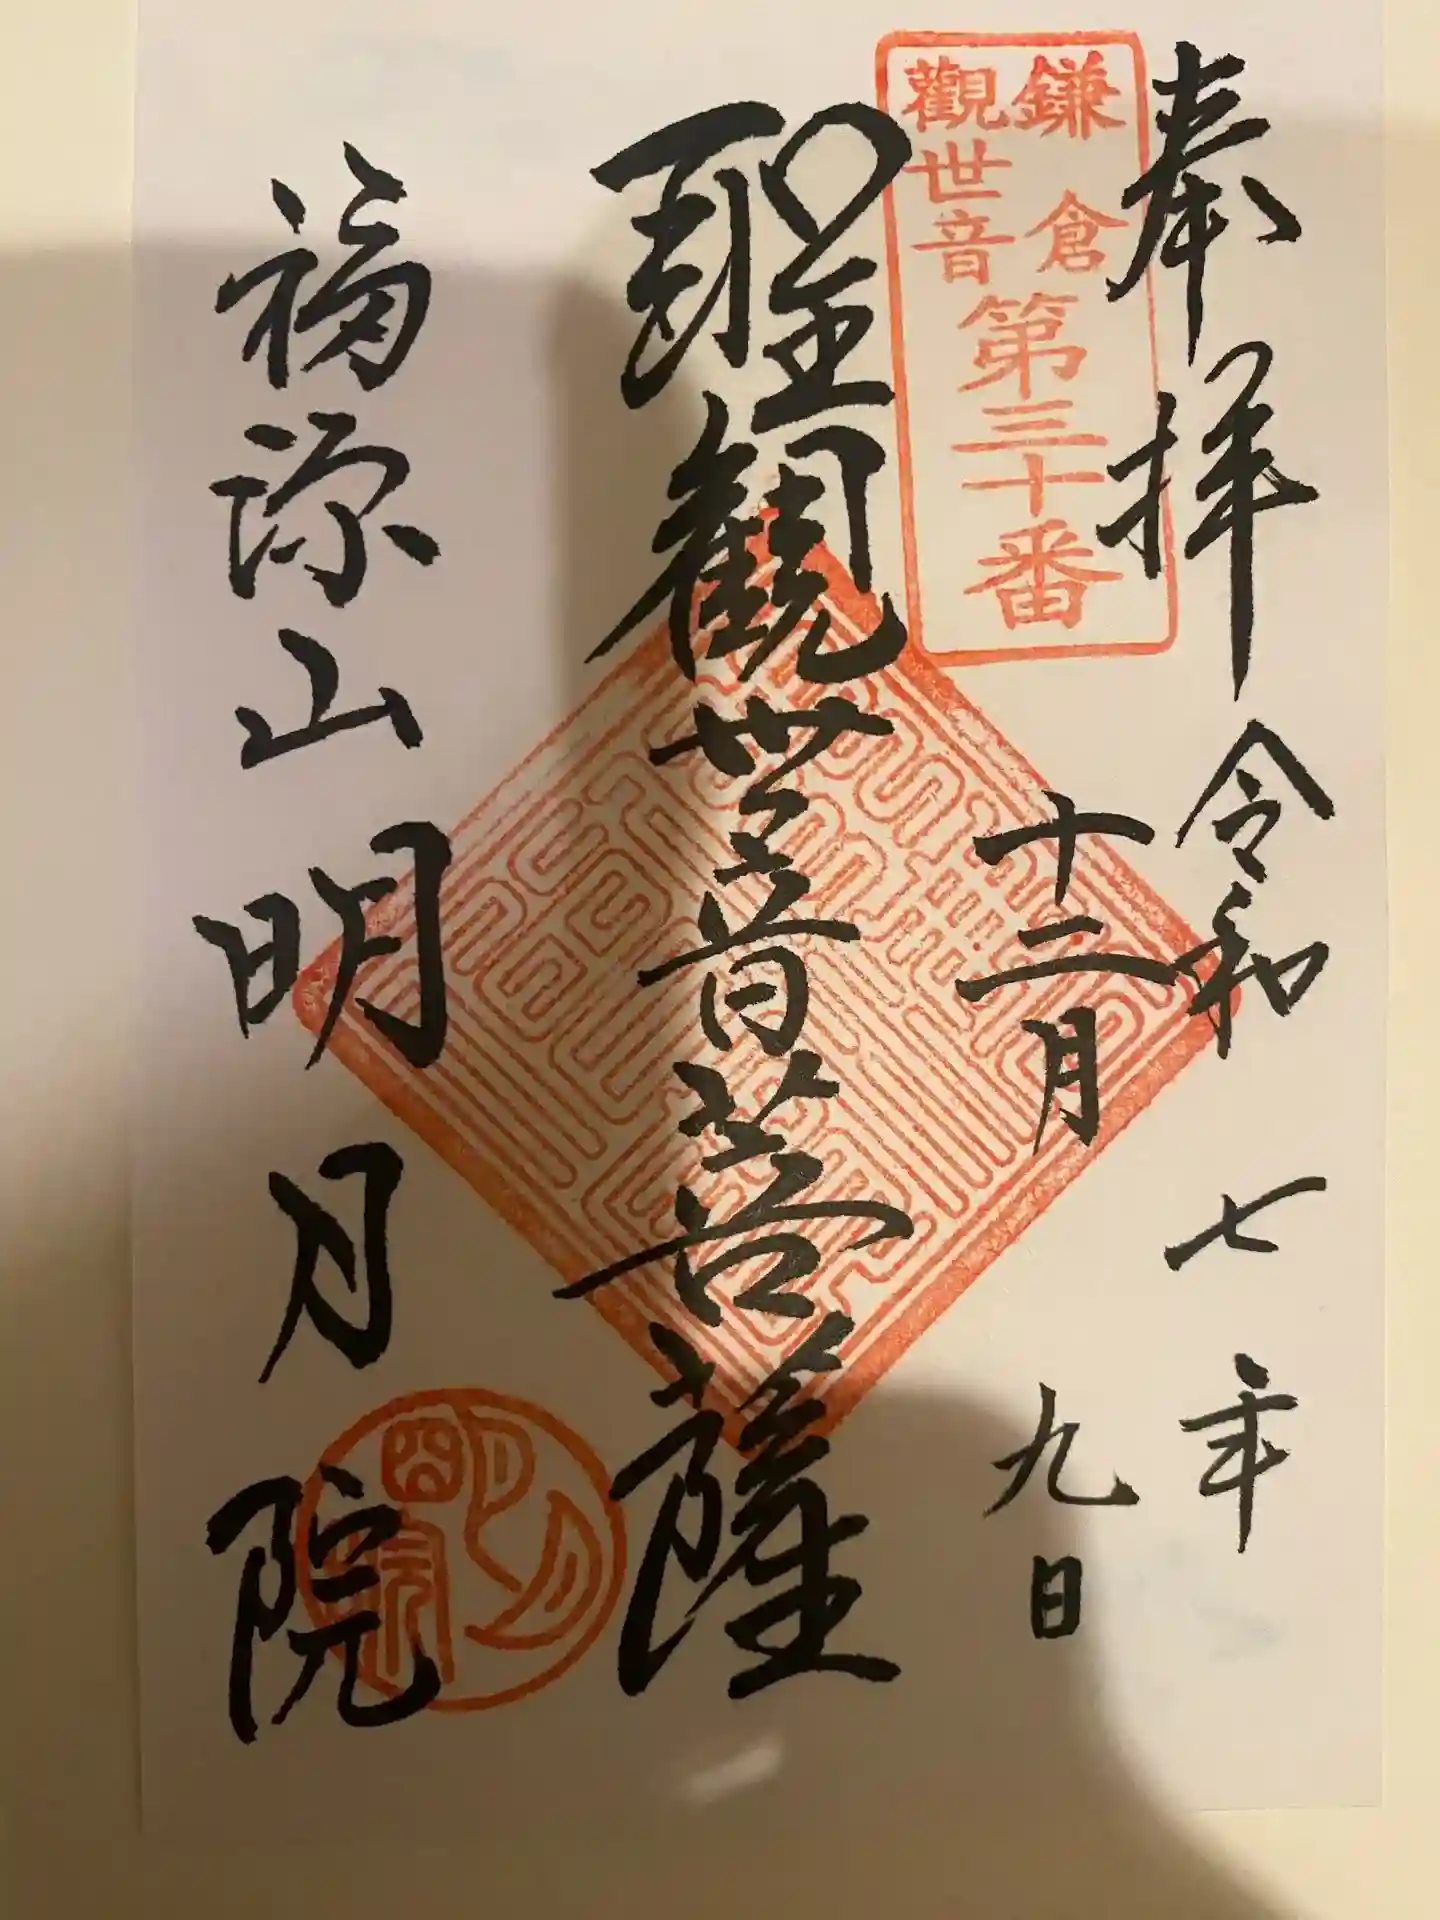 奉拝 令和七年
十二月九日
鎌倉
觀世音
第三十番
聖観世音菩薩
福源山明月院